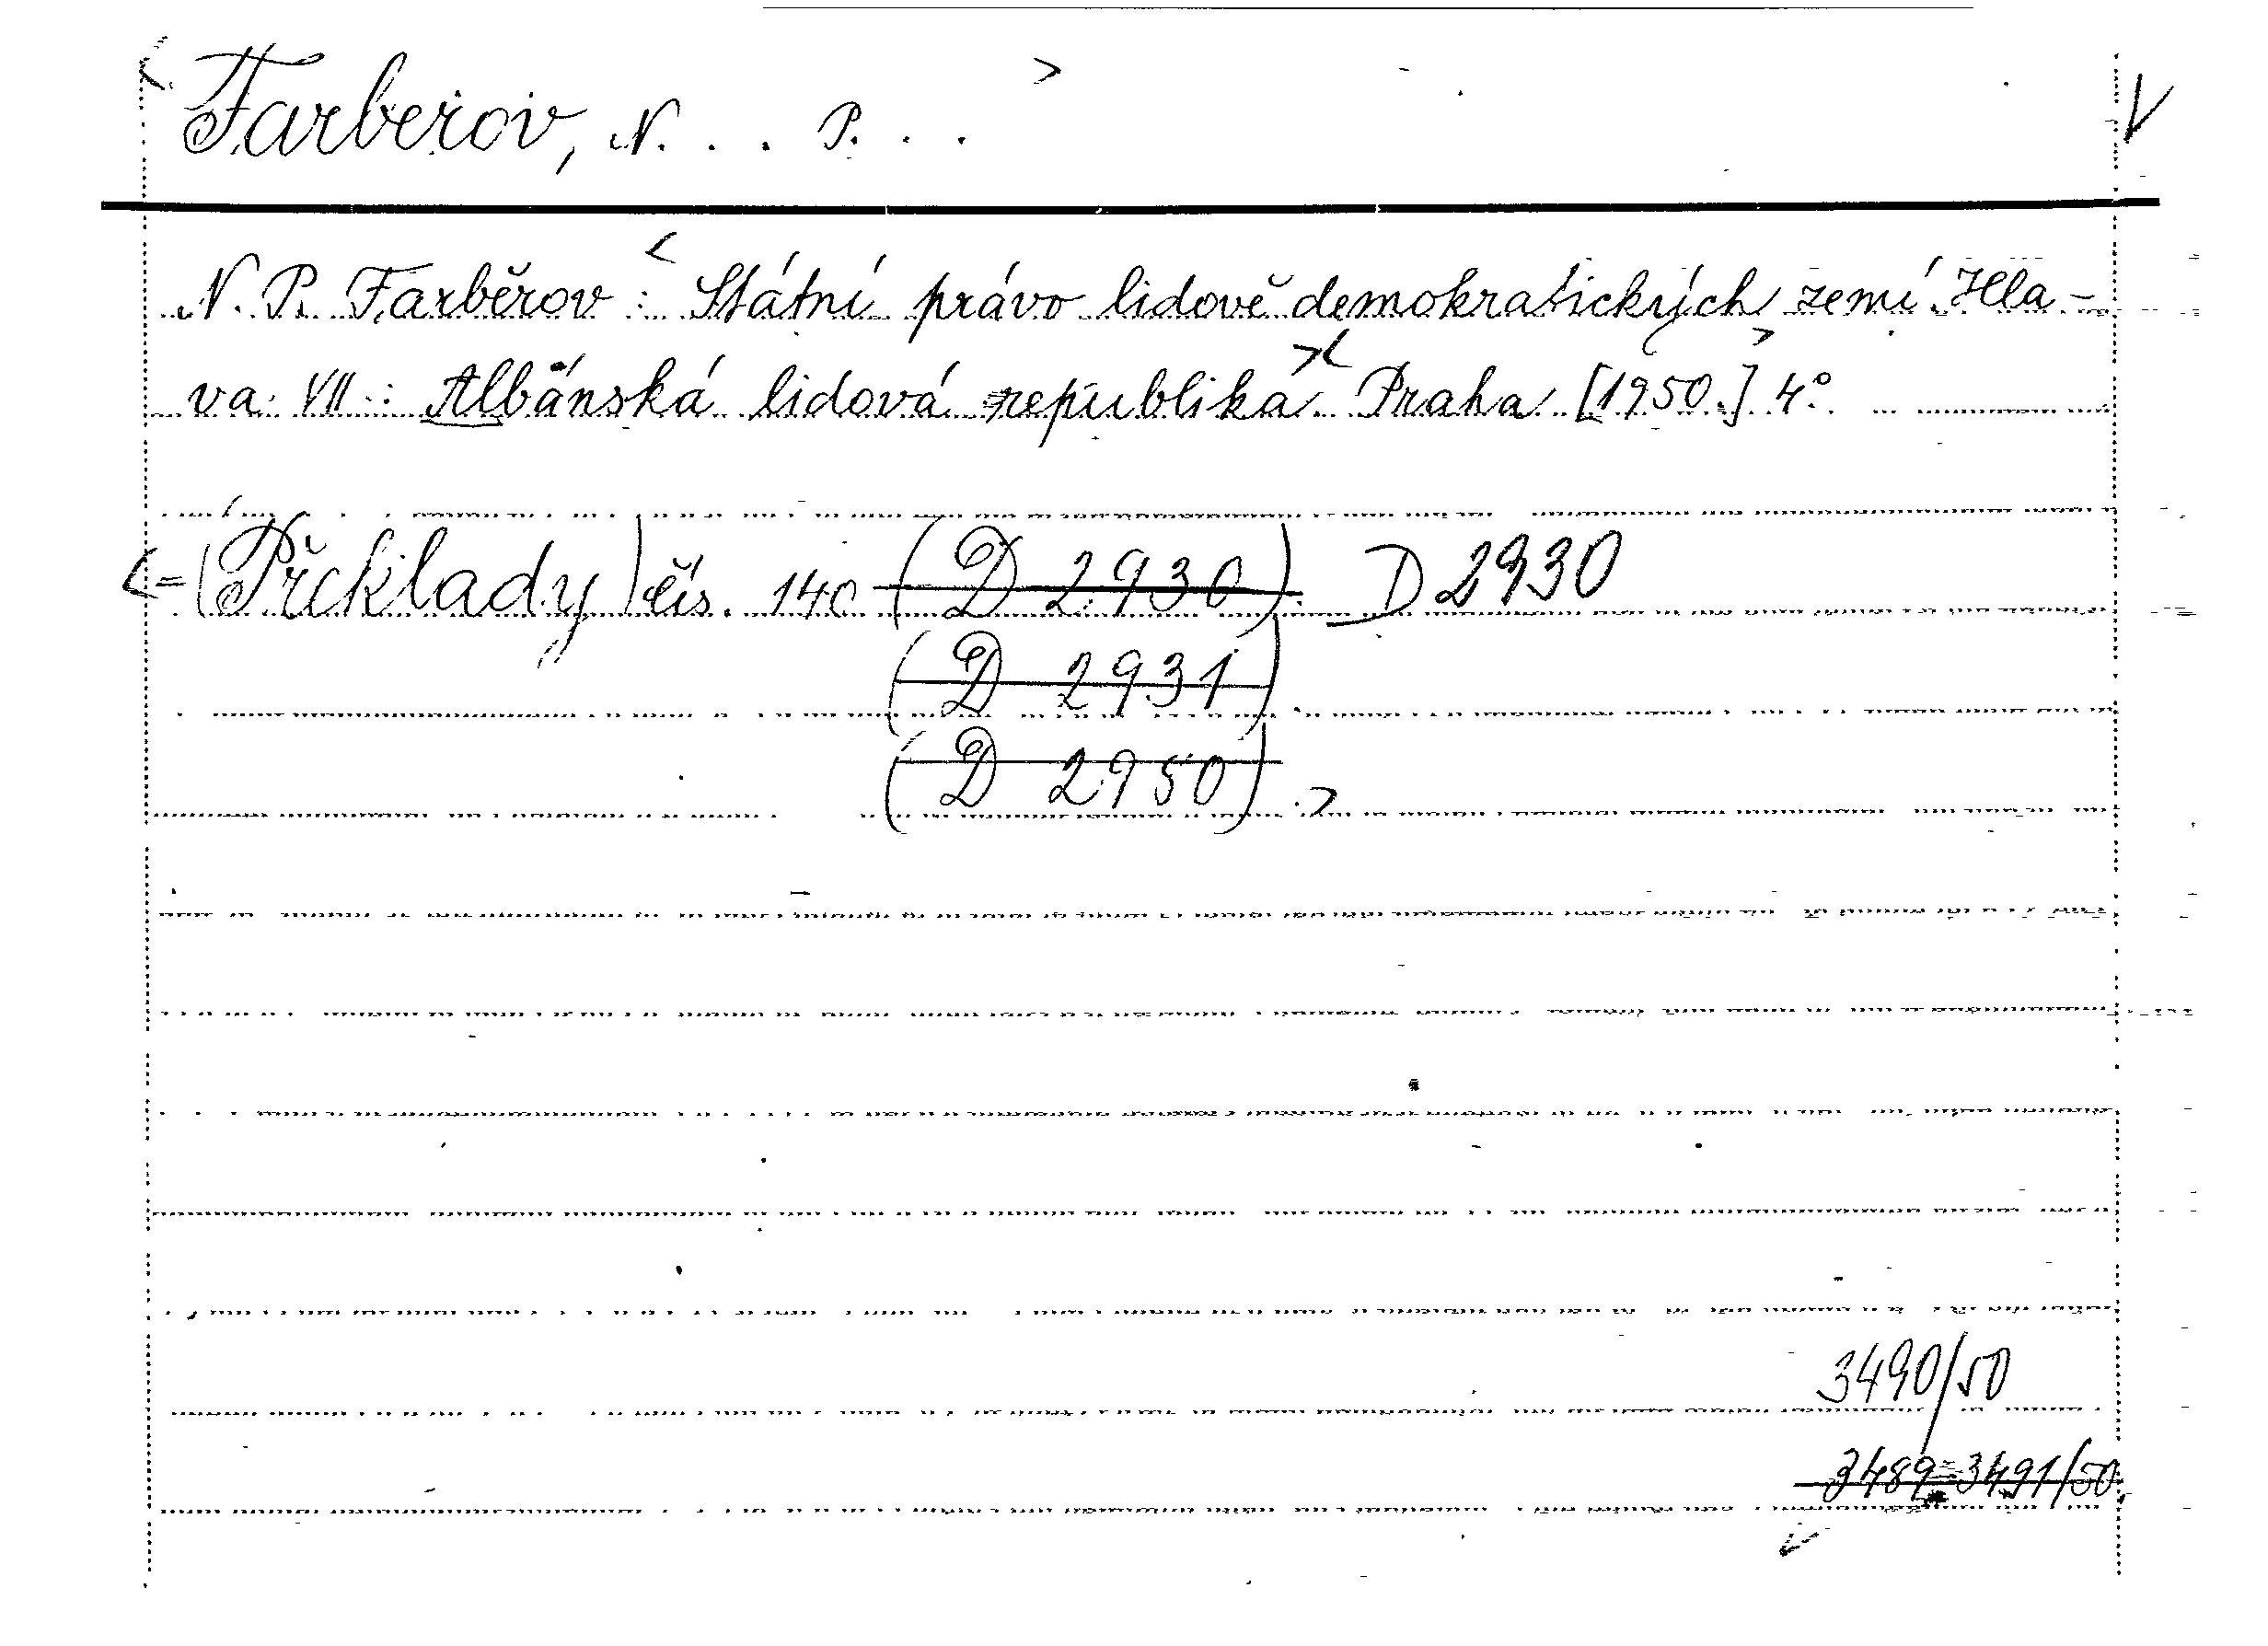 < Farberov, N. . . P. . . > V
N. P. Farběrov: < Státní právo lidově demokratických zemí. Hla-
va VII: Albánská lidová republika >< Praha > [1950.] 4°
<=(Překlady) čís. 140 (D 2930). D 2930
(D 2931)
(D 2950) >
3490/50
3489-3491/50